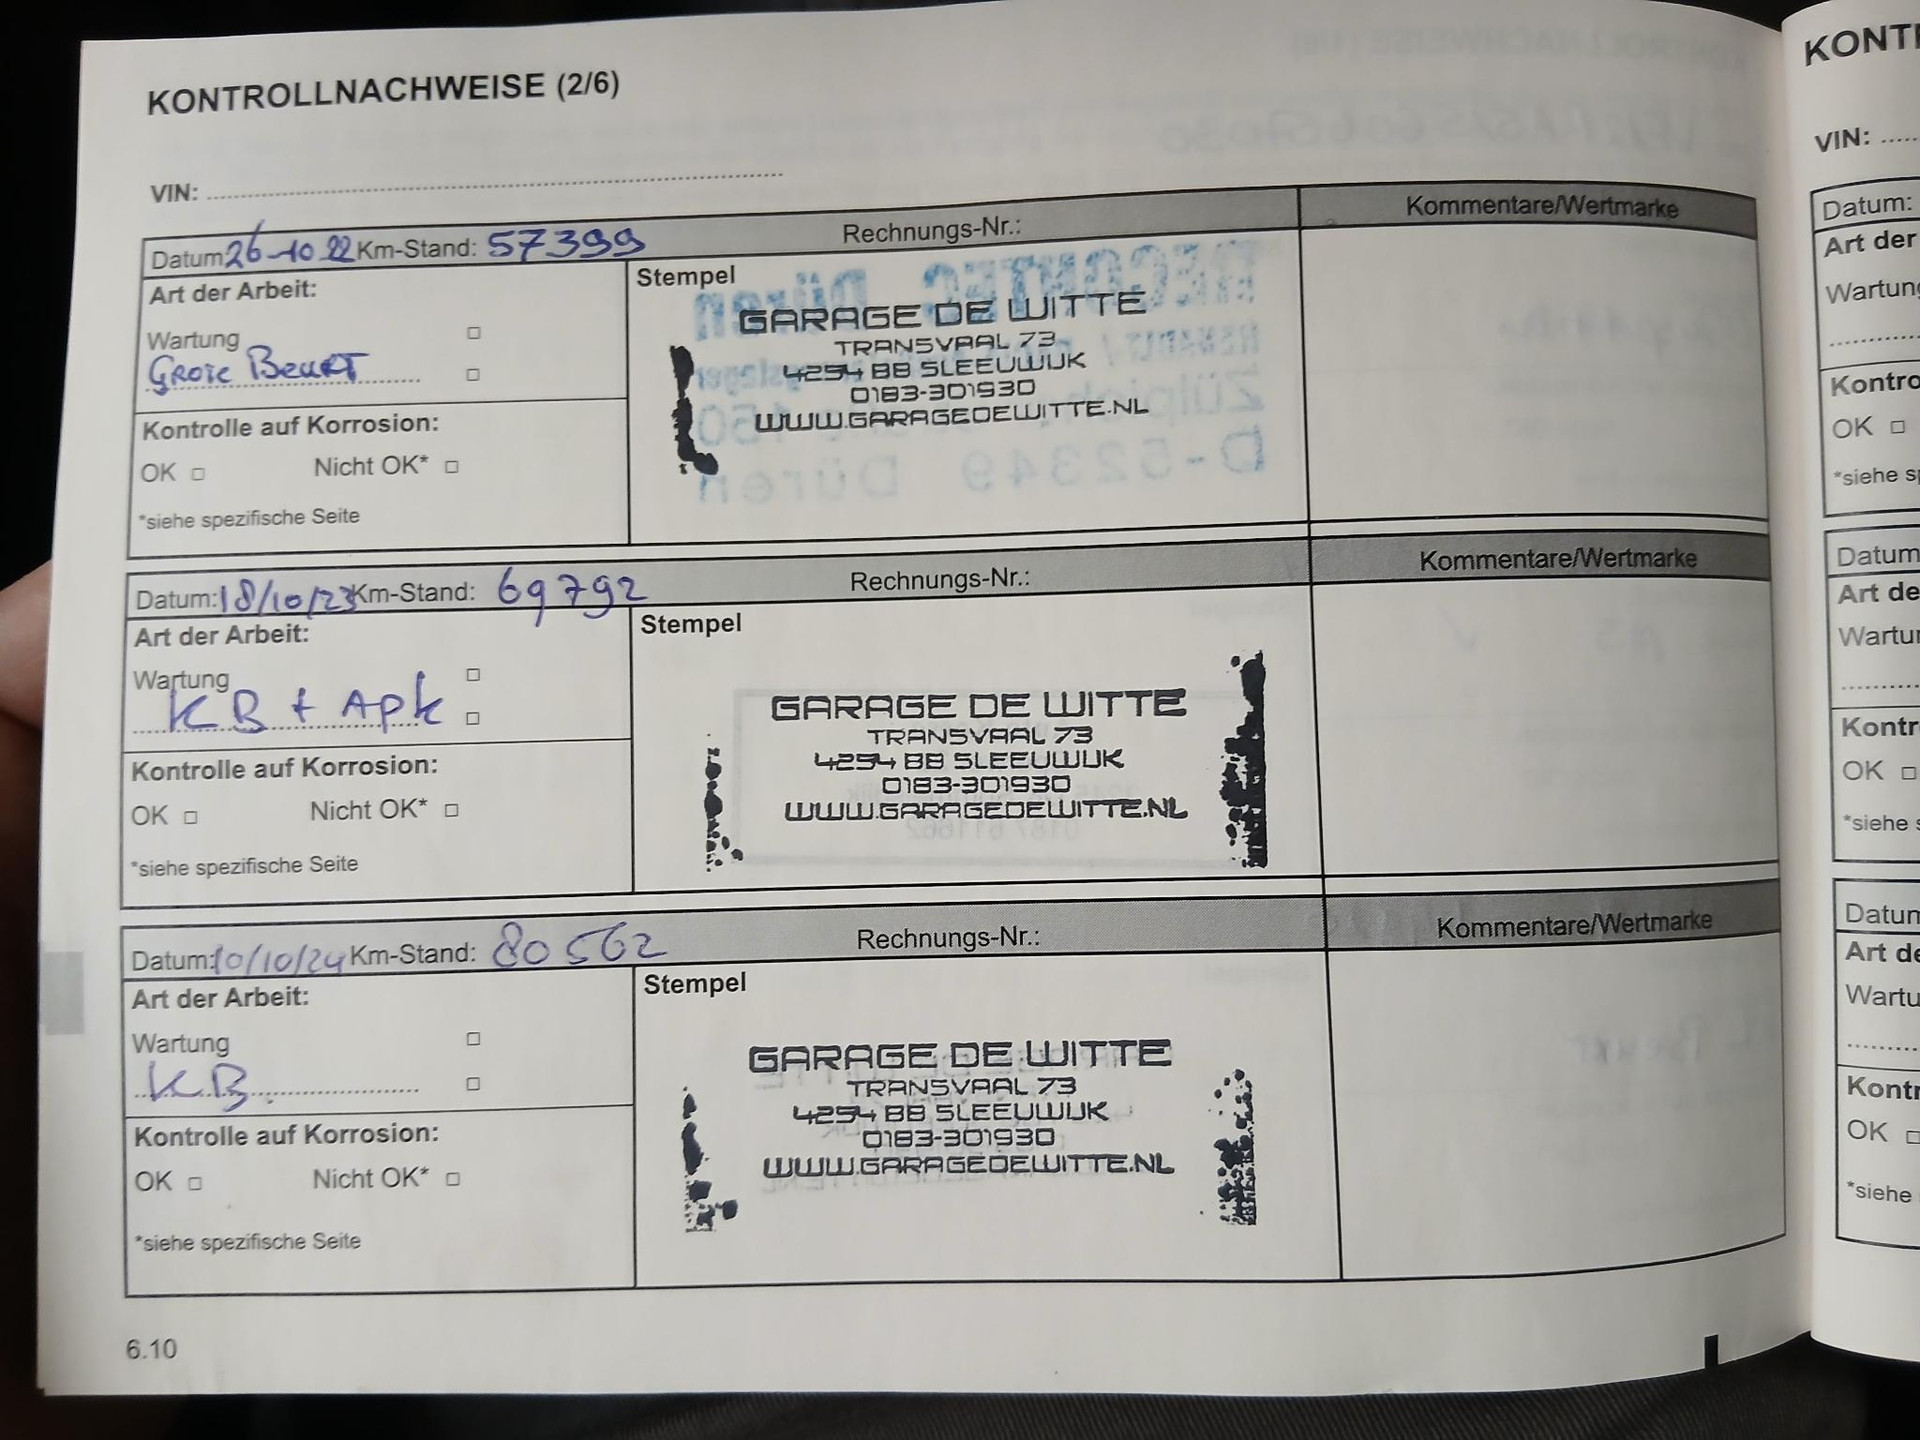 KONTROLLNACHWEISE (2/6)
VIN:
Datum: 26-10 22 Km-Stand: 57399 Rechnungs-Nr.: Kommentare/Wertmarke
Art der Arbeit:
Wartung
Grote Beurt
Kontrolle auf Korrosion:
OK Nicht OK*
*siehe spezifische Seite
Stempel
GARAGE DE WITTE
TRANSVAAL 73
4254 BB SLEEUWIJK
0183-301930
WWW.GARAGEDEWITTE.NL
Datum: 18/10/23 Km-Stand: 69792 Rechnungs-Nr.: Kommentare/Wertmarke
Art der Arbeit:
Wartung
KB + Apk
Kontrolle auf Korrosion:
OK Nicht OK*
*siehe spezifische Seite
Stempel
GARAGE DE WITTE
TRANSVAAL 73
4254 BB SLEEUWIJK
0183-301930
WWW.GARAGEDEWITTE.NL
Datum: 10/10/24 Km-Stand: 80562 Rechnungs-Nr.: Kommentare/Wertmarke
Art der Arbeit:
Wartung
KB
Kontrolle auf Korrosion:
OK Nicht OK*
*siehe spezifische Seite
Stempel
GARAGE DE WITTE
TRANSVAAL 73
4254 BB SLEEUWIJK
0183-301930
WWW.GARAGEDEWITTE.NL
6.10
VIN:
Datum:
Art der
OK
*siehe
Datum
OK
*siehe
OK
*siehe